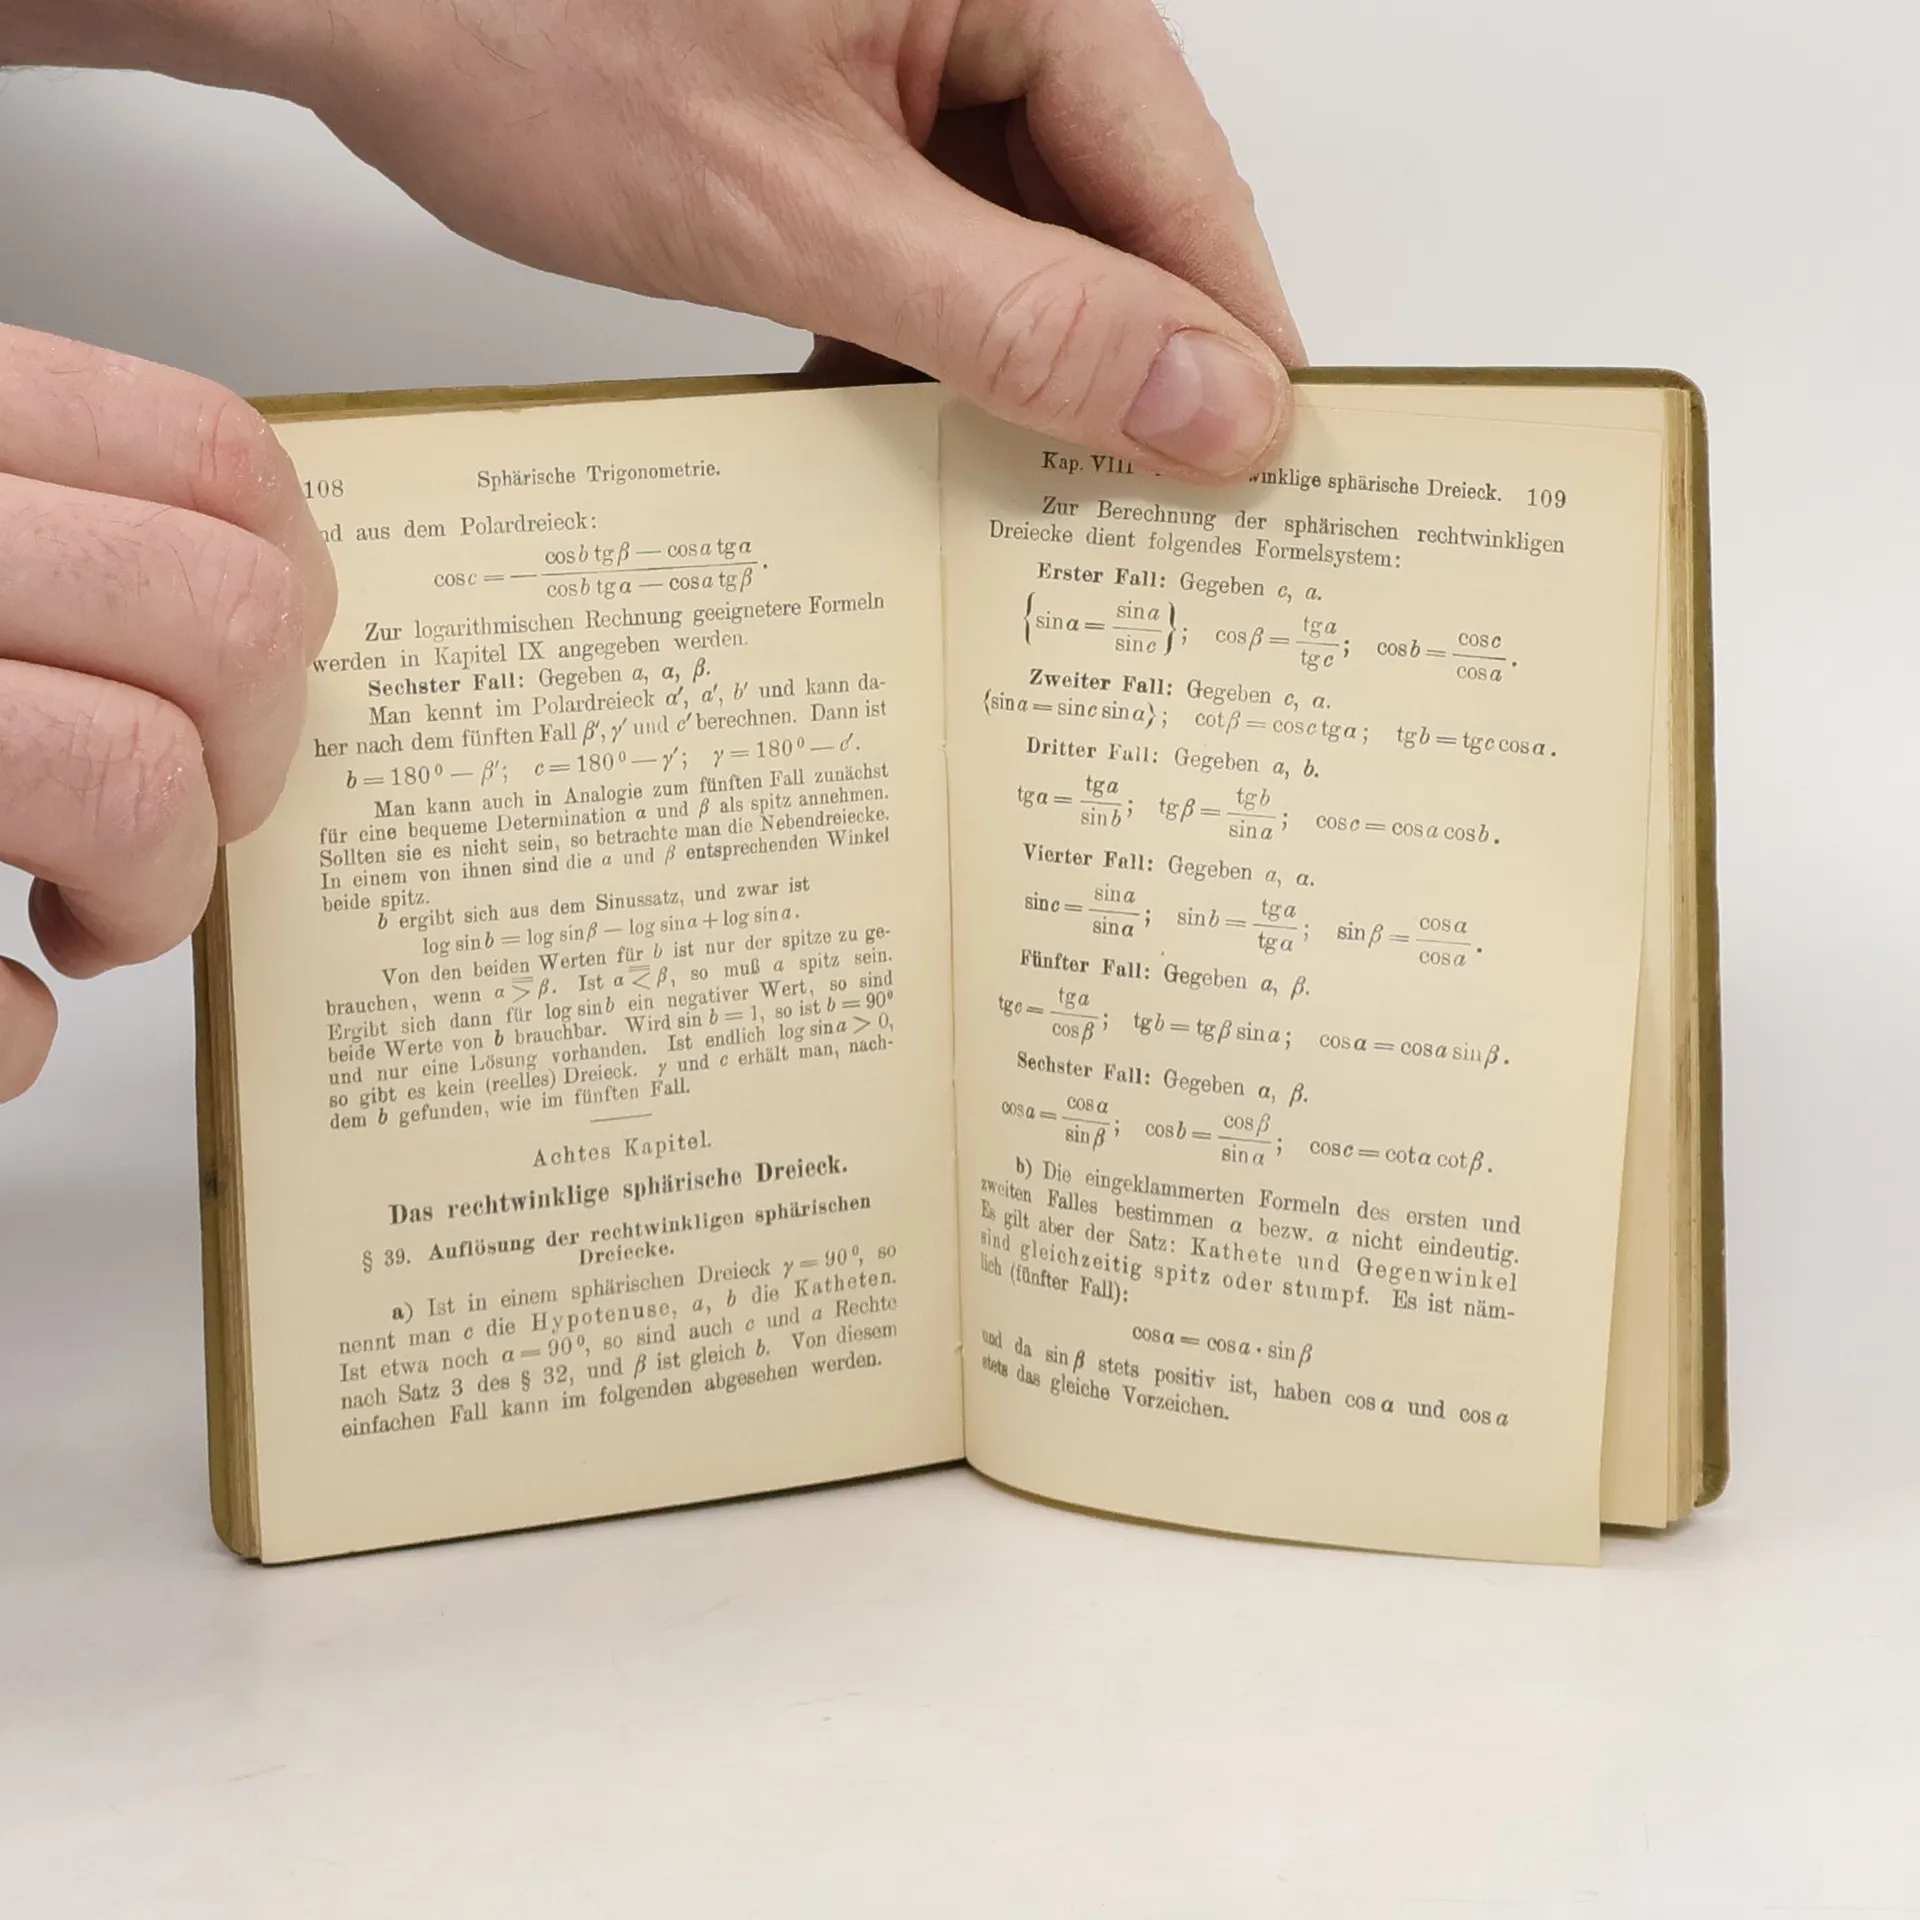 108 Sphärische Trigonometrie.
aus dem Polardreieck:
cos c = — (cos b tg β — cos a tg α) / (cos b tg α — cos a tg β).
Zur logarithmischen Rechnung geeignetere Formeln
werden in Kapitel IX angegeben werden.
Sechster Fall: Gegeben a, α, β.
Man kennt im Polardreieck α′, a′, b′ und kann da-
her nach dem fünften Fall β′, γ′ und c′ berechnen. Dann ist
b = 180⁰ — β′; c = 180⁰ — γ′; γ = 180⁰ — c′.
Man kann auch in Analogie zum fünften Fall zunächst
für eine bequeme Determination α und β als spitz annehmen.
Sollten sie es nicht sein, so betrachte man die Nebendreiecke.
In einem von ihnen sind die α und β entsprechenden Winkel
beide spitz.
b ergibt sich aus dem Sinussatz, und zwar ist
log sin b = log sin β — log sin α + log sin a.
Von den beiden Werten für b ist nur der spitze zu ge-
brauchen, wenn α ⋝ β. Ist α < β, so muß a spitz sein.
Ergibt sich dann für log sin b ein negativer Wert, so sind
beide Werte von b brauchbar. Wird sin b = 1, so ist b = 90⁰
und nur eine Lösung vorhanden. Ist endlich log sin a > 0,
so gibt es kein (reelles) Dreieck. γ und c erhält man, nach-
dem b gefunden, wie im fünften Fall.
Achtes Kapitel.
Das rechtwinklige sphärische Dreieck.
§ 39. Auflösung der rechtwinkligen sphärischen
Dreiecke.
a) Ist in einem sphärischen Dreieck γ = 90⁰, so
nennt man c die Hypotenuse, a, b die Katheten.
Ist etwa noch α = 90⁰, so sind auch c und a Rechte
nach Satz 3 des § 32, und β ist gleich b. Von diesem
einfachen Fall kann im folgenden abgesehen werden.
Kap. VIII sphärische Dreieck. 109
Zur Berechnung der sphärischen rechtwinkligen
Dreiecke dient folgendes Formelsystem:
Erster Fall: Gegeben c, a.
{sin α = sin a / sin c}; cos β = tg a / tg c; cos b = cos c / cos a.
Zweiter Fall: Gegeben c, α.
{sin a = sin c sin α}; cot β = cos c tg α; tg b = tg c cos α.
Dritter Fall: Gegeben a, b.
tg α = tg a / sin b; tg β = tg b / sin a; cos c = cos a cos b.
Vierter Fall: Gegeben a, α.
sin c = sin a / sin α; sin b = tg a / tg α; sin β = cos α / cos a.
Fünfter Fall: Gegeben a, β.
tg c = tg a / cos β; tg b = tg β sin a; cos α = cos a sin β.
Sechster Fall: Gegeben α, β.
cos a = cos α / sin β; cos b = cos β / sin α; cos c = cot α cot β.
b) Die eingeklammerten Formeln des ersten und
zweiten Falles bestimmen α bezw. a nicht eindeutig.
Es gilt aber der Satz: Kathete und Gegenwinkel
sind gleichzeitig spitz oder stumpf. Es ist näm-
lich (fünfter Fall):
cos α = cos a · sin β
und da sin β stets positiv ist, haben cos α und cos a
stets das gleiche Vorzeichen.